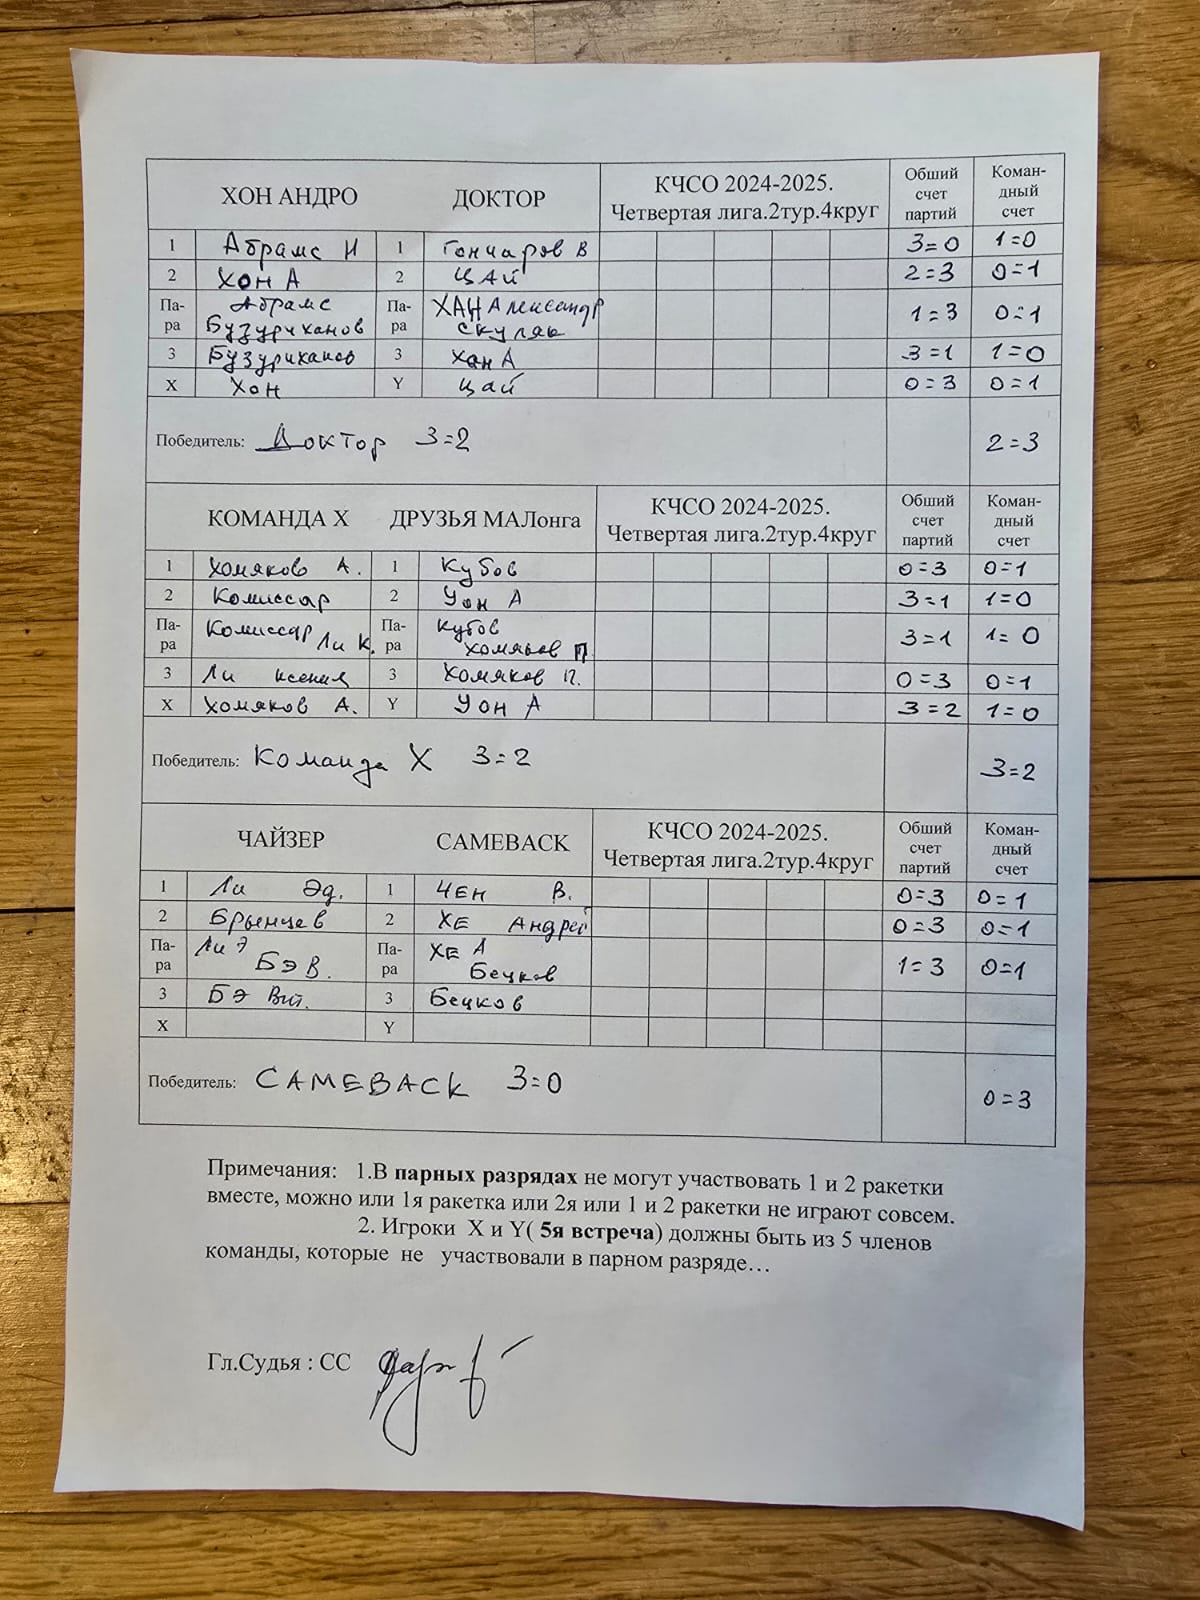 ХОН АНДРО ДОКТОР КЧСО 2024-2025. Четвертая лига.2тур.4круг Обший счет партий Коман-дный счет
1 Абрамс И 1 Гончаров В 3=0 1=0
2 ХОН А 2 ЦАЙ 2=3 0=1
Па-ра Абрамс Бузуриханов Па-ра ХАН Александр Скуляк 1=3 0=1
3 Бузуриханов 3 Хан А 3=1 1=0
X Хон Y Цай 0=3 0=1
Победитель: Доктор 3=2 2=3
КОМАНДА X ДРУЗЬЯ МАЛонга КЧСО 2024-2025. Четвертая лига.2тур.4круг Обший счет партий Коман-дный счет
1 Хомяков А. 1 Кубов 0=3 0=1
2 Комиссар 2 Уон А 3=1 1=0
Па-ра Комиссар Ли К. Па-ра Кубов Хомяков П 3=1 1=0
3 Ли Ксения 3 Хомяков П. 0=3 0=1
X Хомяков А. Y Уон А 3=2 1=0
Победитель: Команда X 3=2 3=2
ЧАЙЗЕР CAMEBACK КЧСО 2024-2025. Четвертая лига.2тур.4круг Обший счет партий Коман-дный счет
1 Ли Эд. 1 ЧЕН В. 0=3 0=1
2 Брынцев 2 ХЕ Андрей 0=3 0=1
Па-ра Ли Э Бэ В. Па-ра ХЕ А Бецков 1=3 0=1
3 Бэ Вит. 3 Бецков
X Y
Победитель: CAMEBACK 3=0 0=3
Примечания: 1.В парных разрядах не могут участвовать 1 и 2 ракетки
вместе, можно или 1я ракетка или 2я или 1 и 2 ракетки не играют совсем.
2. Игроки X и Y( 5я встреча) должны быть из 5 членов
команды, которые не участвовали в парном разряде…
Гл.Судья : СС